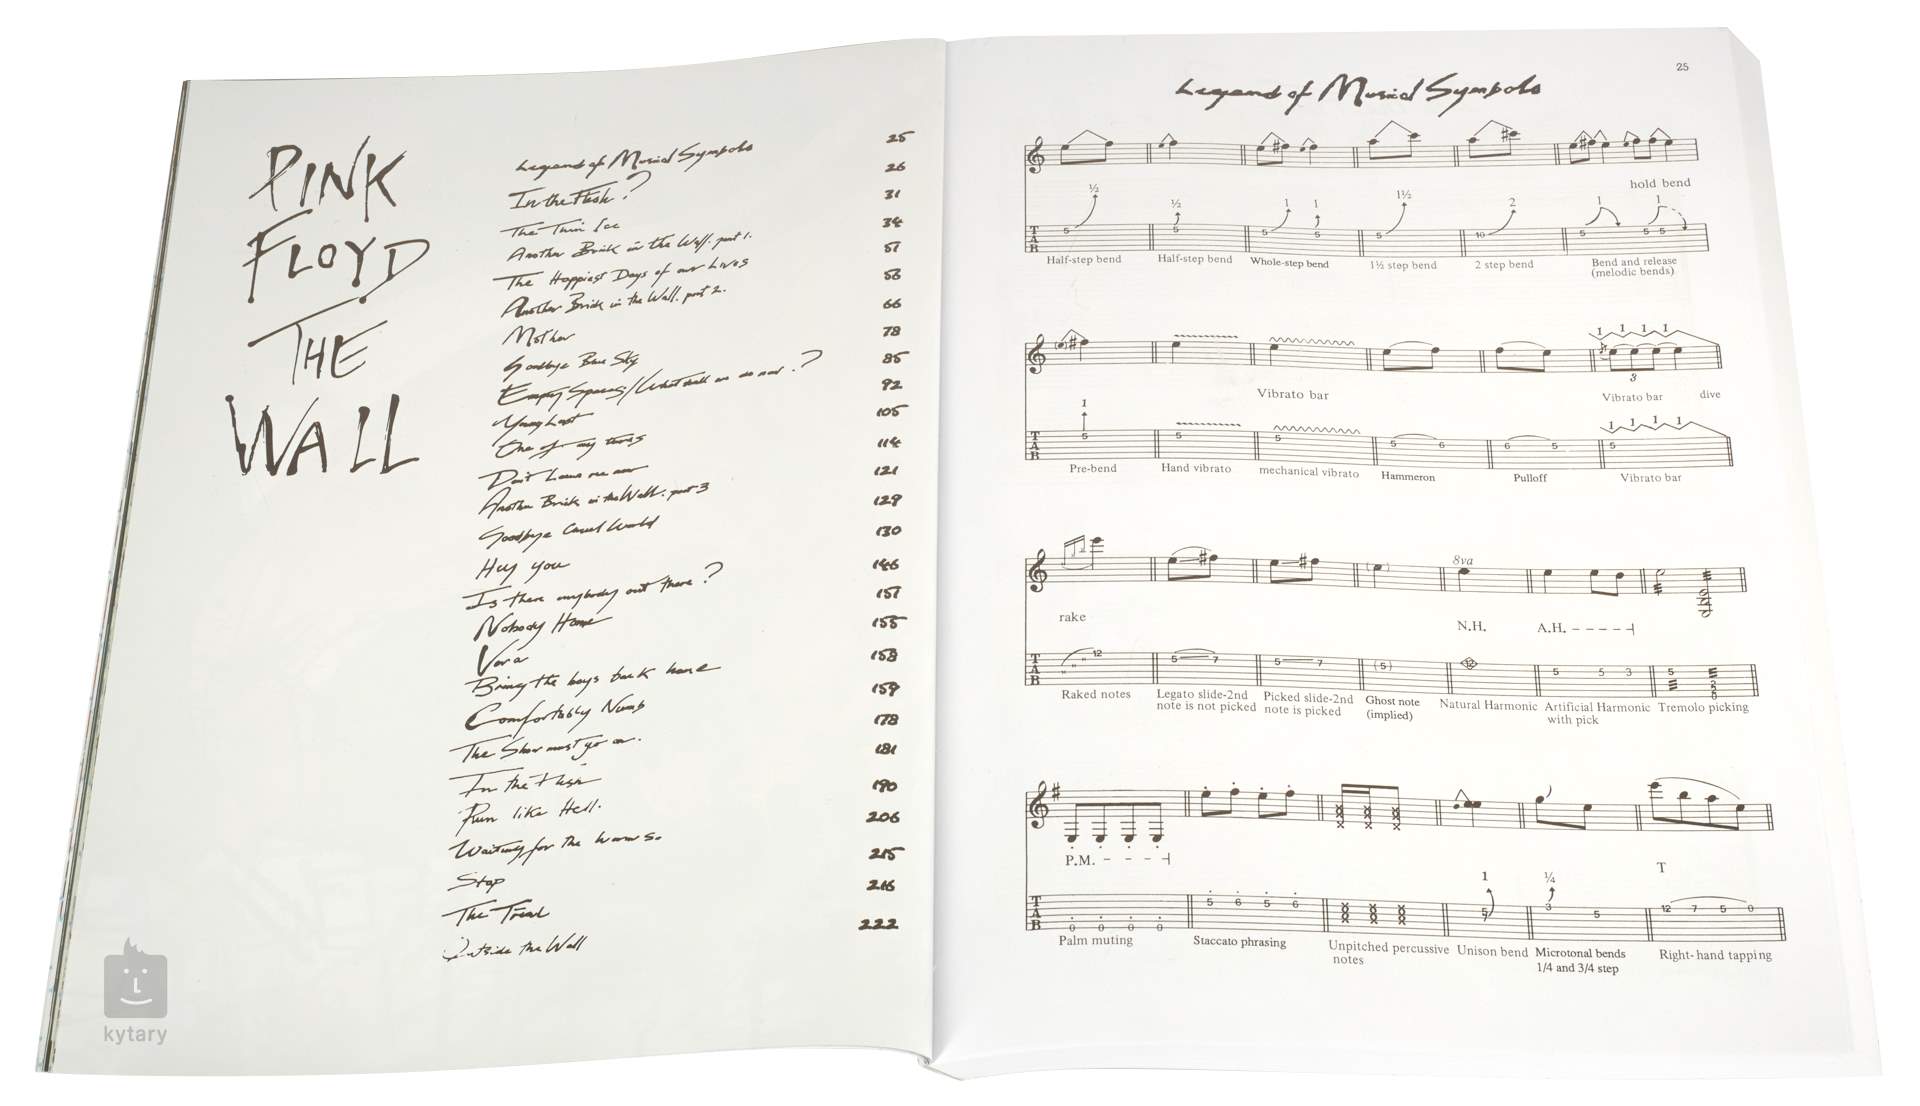 PINK
FLOYD
THE
WALL
Legend of Musical Symbols 25
In the Flesh? 26
The Thin Ice 31
Another Brick in the Wall. part 1. 34
The Happiest Days of our Lives 51
Another Brick in the Wall. part 2. 53
Mother 66
Goodbye Blue Sky 78
Empty Spaces/What shall we do now? 85
Young Lust 92
One of my turns 105
Don't Leave me now 114
Another Brick in the Wall. part 3 121
Goodbye Cruel World 129
Hey you 130
Is there anybody out there? 146
Nobody Home 151
Vera 155
Bring the boys back home 158
Comfortably Numb 159
The Show must go on. 178
In the Flesh 181
Run like Hell. 190
Waiting for the worms. 206
Stop 215
The Trial 216
Outside the Wall 222
kytary
25
Legend of Musical Symbols
hold bend
½ ½ 1 1 1½ 2 1 1
T A B 5 5 5 5 5 10 5 5 5
Half-step bend Half-step bend Whole-step bend 1½ step bend 2 step bend Bend and release
(melodic bends)
1 1 1 1
3
Vibrato bar Vibrato bar dive
1 1 1 1 1
T A B 5 5 5 5 6 6 5 5
Pre-bend Hand vibrato mechanical vibrato Hammeron Pulloff Vibrato bar
8va
rake N.H. A.H.
T A B 12 5 7 5 7 (5) 12 5 5 3 5
Raked notes Legato slide-2nd Picked slide-2nd Ghost note Natural Harmonic Artificial Harmonic Tremolo picking
note is not picked note is picked (implied) with pick
P.M. T
1 ¼
T A B 0 0 0 0 5 6 5 6 x x x 5 3 5 12 7 5 0
Palm muting Staccato phrasing Unpitched percussive Unison bend Microtonal bends Right-hand tapping
notes 1/4 and 3/4 step